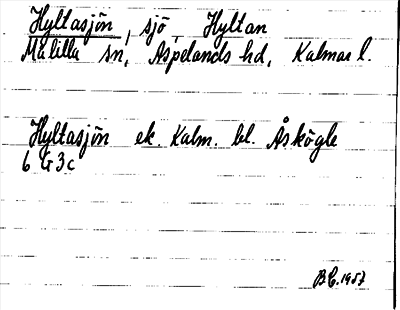 Hyltasjön, sjö, Hyltan
Målilla sn, Aspelands hd, Kalmar l.
Hyltasjön ek. Kalm. bl. Åskögle
6 G 3 c
1957